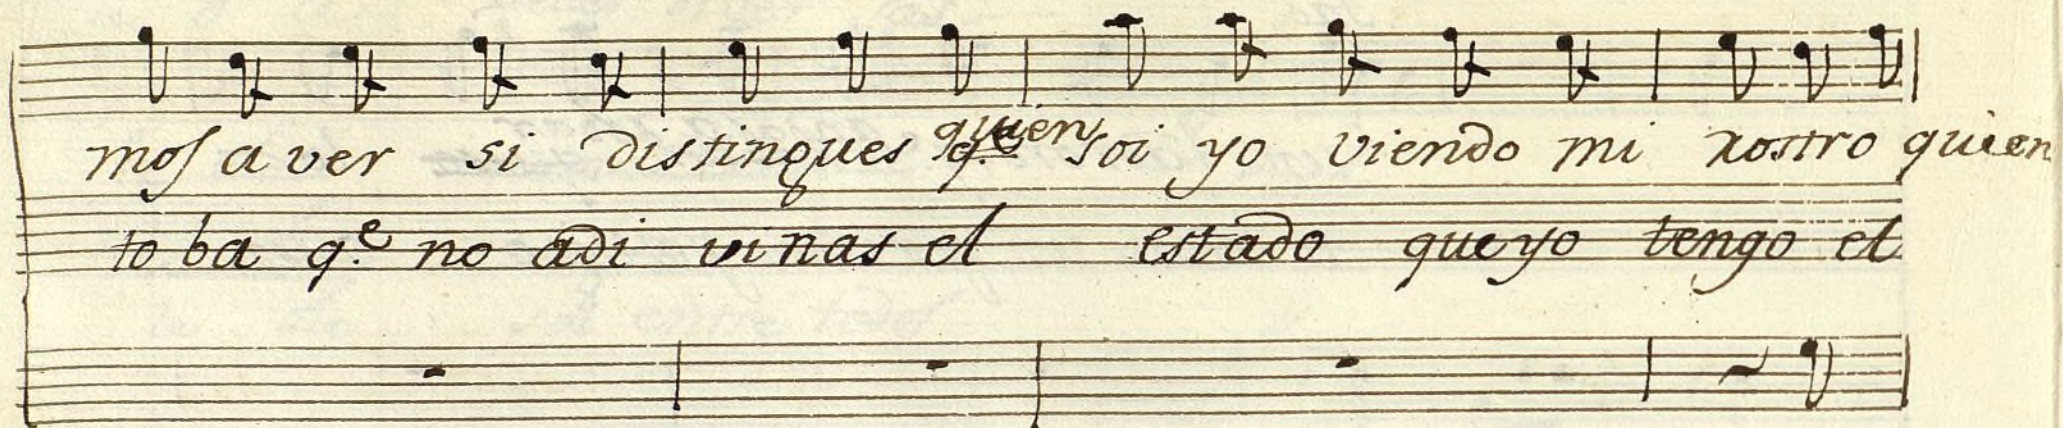 mos a ver si distingues quien soi yo viendo mi rostro quien
to ba q.e no adi vinas el estado que yo tengo el